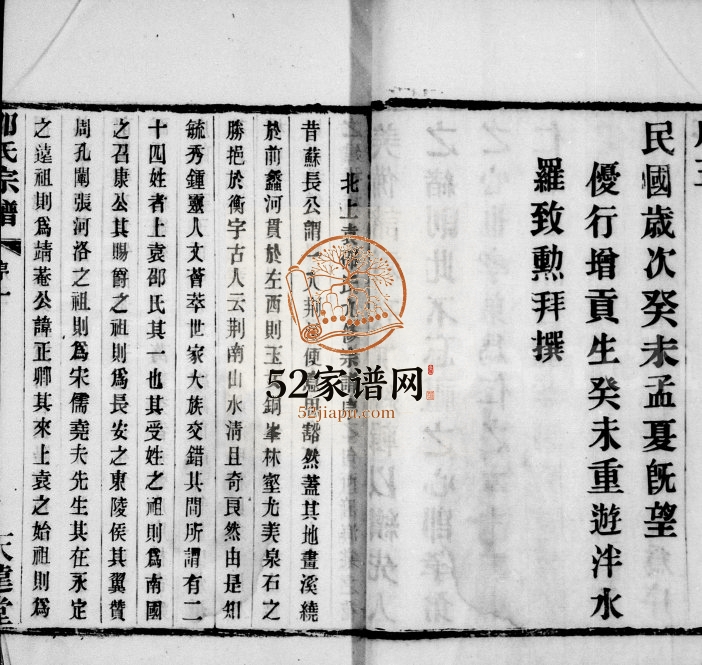 民國歲次癸未孟夏旣望
優行增貢生癸未重遊泮水
羅致勳拜撰
北上袁邵氏九修宗譜序
昔蘇長公謂一入荆溪便意思豁然蓋其地畫溪繞
於前蠡河貫於左西則玉銅峯林壑尤美泉石之
勝挹於衡宇古人云荆南山水清且奇良然由是知
毓秀鍾靈人文薈萃世家大族交錯其間所謂有二
十四姓者上袁邵氏其一也其受姓之祖則爲南國
之召康公其賜爵之祖則爲長安之東陵侯其翼贊
周孔闡張河洛之祖則爲宋儒堯夫先生其在永定
之遠祖則爲靖菴公諱正卿其來上袁之始祖則爲
邵氏宗譜
序一
天遠堂
52家谱网
52jiapu.com